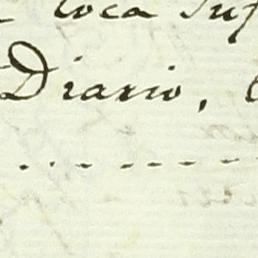 toca suf
Diario,